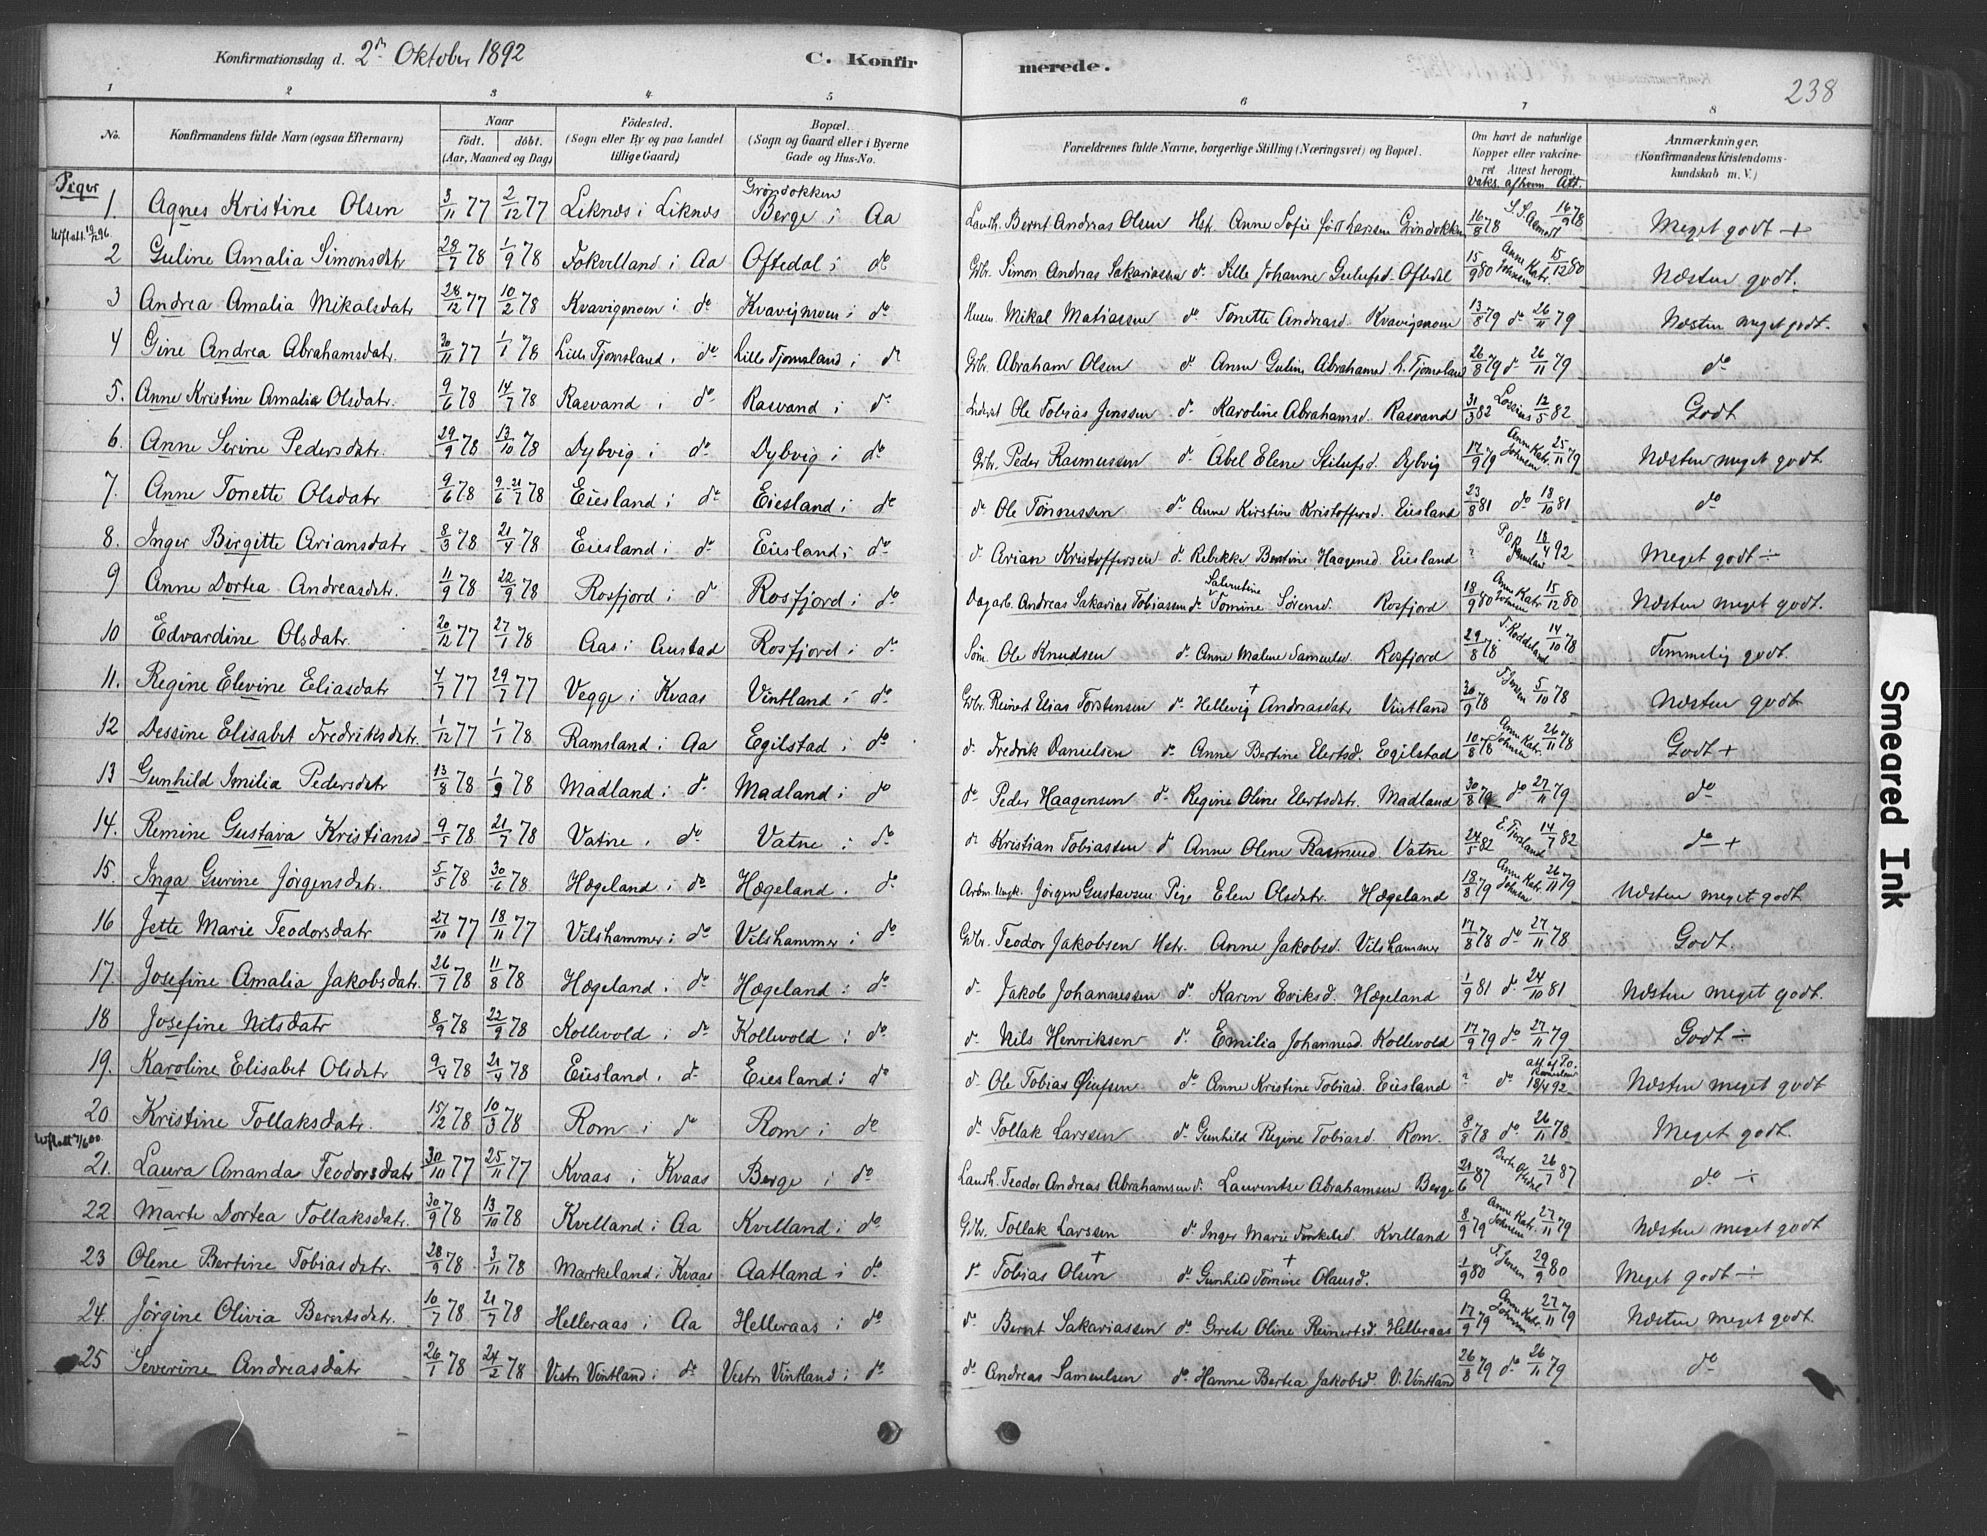 Konfirmationsdag d. 2den Oktober 1892
C. Konfirmerede.
238
1 2 3 4 5 6 7 8
No. Konfirmandens fulde Navn (ogsaa Efternavn) Naar födt. döbt. (Aar, Maaned og Dag) Födested. (Sogn eller By og paa Landet tillige Gaard) Bopæl. (Sogn og Gaard eller i Byerne Gade og Hus-No. Forældrenes fulde Navne, borgerlige Stilling (Næringsvei) og Bopæl. Om havt de naturlige Kopper eller vakcineret Attest herom. Anmærkninger. (Konfirmandens Kristendomskundskab m. V.)
Vaks. af hvem Att.
Piger
1. Agnes Kristine Olsen 3/11 77 2/12 77 Liknes i Liknes Grindokken Berge i Aa Landh. Bernt Andreas Olsen Hst. Anne Sofie Larsen Grindokken 16/8 78 16/9 78 Meget godt +
2 Guline Amalia Simonsdtr 28/7 78 1/9 78 Fokvelland i Aa Oftedal i do Gbr. Simon Andreas Sakariassen do Sille Johanne Gulufsd. Oftedal 15/9 80 Anne Katr. Johnsen 15/12 80 Næsten godt.
3 Andrea Amalia Mikalsdatr 28/12 77 10/2 78 Kvavigmoen i do Kvavigmoen i do Husm. Mikal Matiassen do Tonette Andreasd. Kvavigmoen 13/8 79 do 26/11 79 Næsten meget godt.
4 Gine Andrea Abrahamsdatr. 30/11 77 1/1 78 Lille Tjomsland i do Lille Tjomsland i do Gbr. Abraham Olsen do Anne Guline Abrahamsd. L. Tjomsland 26/8 79 do 26/11 79 do
5. Anne Kristine Amalia Olsdatr. 9/6 78 14/7 78 Rasvand i do Rasvand i do Inderst Ole Tobias Jenssen do Karoline Abrahamsd. Rasvand 31/3 82 Lossius 12/5 82 Godt
6. Anne Serine Pedersdatr. 29/9 78 13/10 78 Dybvig i do Dybvig i do Gbr. Peder Rasmussen do Abel Elene Stilufsd. Dybvig 17/9 79 Anne Katr. Johnsen 25/11 79 Næsten meget godt
7. Anne Tonette Olsdatr 9/6 78 9/6-21/7 78 Eiesland i do Eiesland i do do Ole Tönnessen do Anne Kirstine Kristoffersd. Eiesland 23/8 81 do 18/10 81 do
8. Inger Birgitte Ariansdatr 8/3 78 21/4 78 Eiesland i do Eiesland i do do Arian Kristoffersen do Rebekka Bentine Haagensd. Eiesland ? P.O. 18/4 92 Meget godt ÷
9 Anne Dortea Andreasdtr. 11/9 78 22/9 78 Rosfjord i do Rosfjord i do Dagarb. Andreas Sakarias Tobiassen do Salentine Tomine Sörensd. Rosfjord 18/9 80 Anne Katr. Johnsen 15/12 80 Næsten meget godt.
10 Edvardine Olsdatr. 20/12 77 27/1 78 Aas i Austad Rosfjord i do Söm. Ole Knudsen do Anne Malene Samuelsd. Rosfjord 29/8 78 T. Roddeland 14/10 78 Temmelig godt.
11. Regine Elevine Eliasdatr 4/7 77 29/7 77 Vegge i Kvaas Vintland i do Gbr. Reinert Elias Torstensen do Hellevig + Andreasdatr Vintland 30/9 78 T. Jensen 5/10 78 Næsten godt
12 Dessine Elisabet Fredriksdatr. 1/12 77 1/1 78 Ramsland i Aa Egilstad i do do Fredrik Danielsen do Anne Bertine Elertsd. Egilstad 10/8 78 Anne Katr. Johnsen 26/11 78 Godt +
13 Gunhild Emilia Pedersdatr 13/8 78 1/9 78 Madland i do Madland i do do Peder Haagensen do Regine Oline Elertsdatr. Madland 30/8 79 do 27/11 79 do
14. Remine Gustava Kristiansd 9/5 78 21/7 78 Vatne i do Vatne i do do Kristian Tobiassen do Anne Olene Rasmusd. Vatne 24/5 82 E. Tjorsland 14/7 82 do +
15. Inga Gurine Jörgensdatr. 5/5 78 30/6 78 Hægeland i do Hægeland i do Jörgen Gustavsen Pige Elen Olsdatr. Hægeland 18/8 79 Anne Katr. Johnsen 26/11 79 Næsten meget godt.
16 Jette Marie Teodorsdatr 27/10 77 18/11 77 Vilshammer i do Vilshammer i do Gbr. Teodor Jakobsen Hstr. Anne Jakobsd. Vilshammer 17/8 78 do 27/11 78 Godt.
17. Josefine Amalia Jakobsdatr. 26/7 78 11/8 78 Hægeland i do Hægeland i do do Jakob Johannessen do Karen Eriksd. Hægeland 1/9 81 do 24/10 81 Næsten meget godt.
18 Josefine Nilsdatr 8/9 78 22/9 78 Kollevold i do Kollevold i do do Nils Henriksen do Emilia Johannesd. Kollevold 17/9 79 do 27/11 79 Godt ÷
19. Karoline Elisabet Olsdatr 9/4 78 21/4 78 Eiesland i do Eiesland i do do Ole Tobias do Anne Kristine Tobiasd. Eiesland ? do att. af P.O. 18/4 92 Næsten meget godt
20 Kristine Tollaksdatr. 15/2 78 10/3 78 Rom i do Rom i do do Tollak Larssen do Gunhild Regine Tobiasd. Rom. 8/8 78 do 26/11 78 Meget godt.
21. Laura Amanda Teodorsdatr 30/10 77 25/11 77 Kvaas i Kvaas Berge i do Landh. Teodor Andreas Abrahamsen do Laurentse Abrahamsen Berge 21/6 87 Berte Oftedal 26/7 87 do ÷
22 Marte Dortea Tollaksdatr. 30/9 78 13/10 78 Kvelland i Aa Kvelland i do Gbr. Tollak Larssen do Inger Marie Torkelsd. Kvelland 8/9 79 Anne Katr. Johnsen 27/11 79 Næsten meget godt
23 Olene Bertine Tobiasdatr. 28/9 78 3/11 78 Markeland i Kvaas Aatland i do do Tobias Olsen + do Gunhild Tomine + Olausd. 1/9 80 T. Jensen 29/9 80 Meget godt ÷
24. Jörgine Olivia Berntsdatr. 10/7 78 21/7 78 Helleraas i Aa Helleraas i do do Bernt Sakariassen do Grete Oline Reinertsd. Helleraas 17/9 79 Anne Katr. Johnsen 27/11 79 Næsten meget godt.
25 Severine Andreasdatr 26/1 78 24/2 78 Vestr Vintland i do Vestr Vintland i do do Andreas Samuelsen do Hanne Bertea Jakobsd. V. Vintland 26/8 79 do 26/11 79 do
Smeared Ink